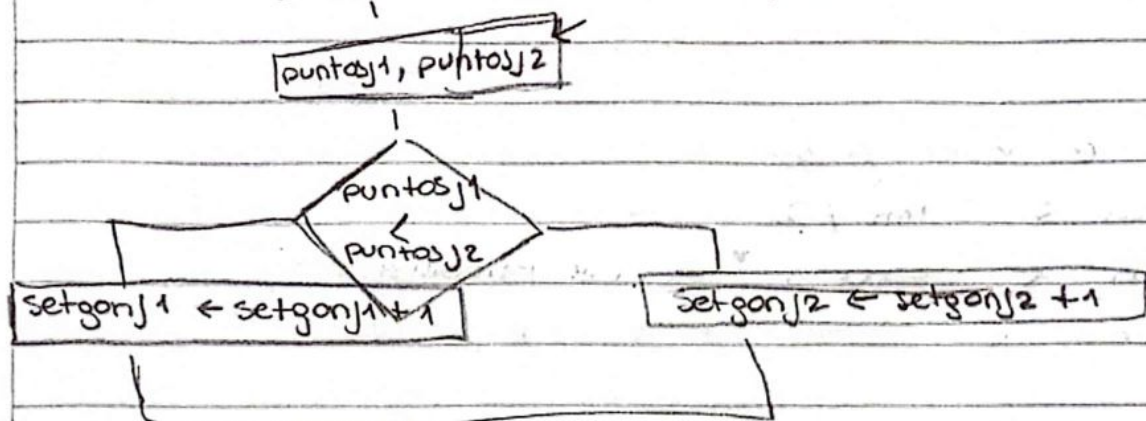 puntosj1, puntosj2
puntosj1
<
puntosj2
setganj1 ← setganj1 + 1
setganj2 ← setganj2 + 1